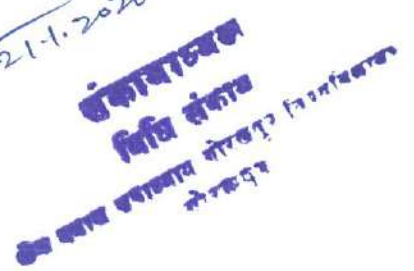 21.1.2020
संकायाध्यक्ष
विधि संकाय
दीन दयाल उपाध्याय गोरखपुर विश्वविद्यालय
गोरखपुर